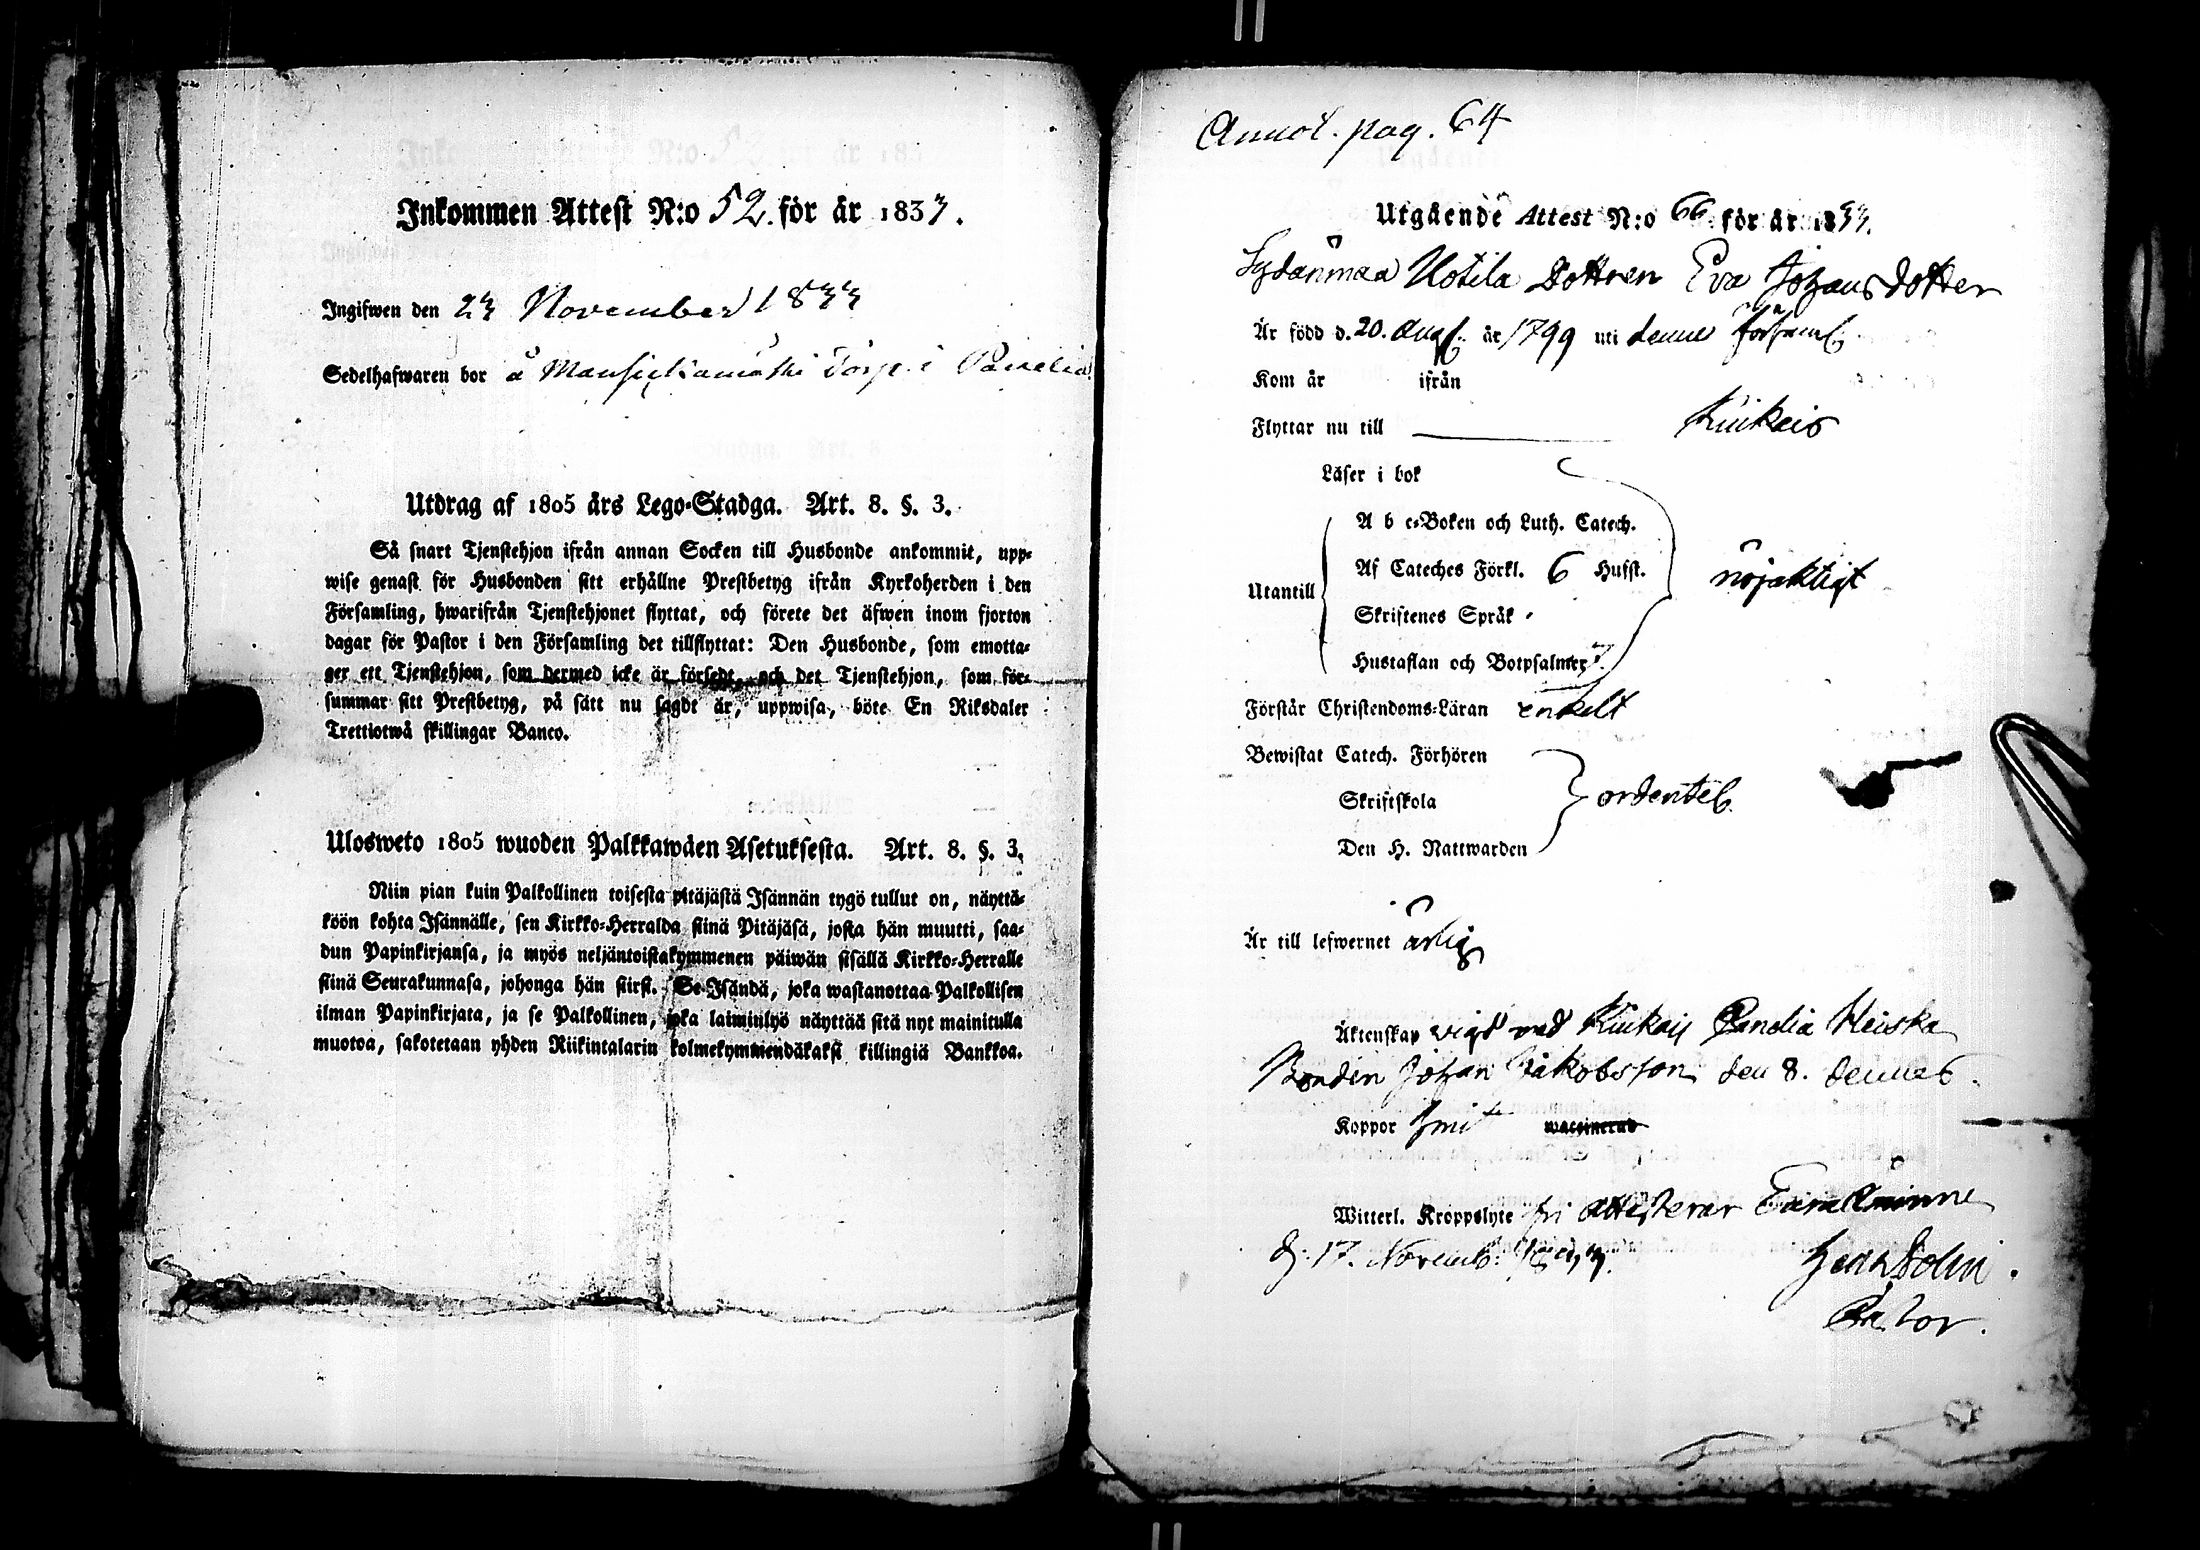 Inkommen Attest N:o 52. för år 1833.
Ingifwen den 23 November 1833
Sedelhafwaren bor å Torp i Panelia
Utdrag af 1805 års Lego-Stadga. Art. 8. §. 3.
Så snart Tjenstehjon ifrån annan Socken till Husbonde ankommit, upp-
wise genast för Husbonden sitt erhållne Prestbetyg ifrån Kyrkoherden i den
Församling, hwarifrån Tjenstehjonet flyttat, och förete det äfwen inom fjorton
dagar för Pastor i den Församling det tillflyttat: Den Husbonde, som emotta-
ger ett Tjenstehjon, som dermed icke är försedt, och det Tjenstehjon, som för-
summar sitt Prestbetyg, på sätt nu sagdt är, uppwisa, böte En Riksdaler
Trettiotwå skillingar Banco.
Ulosweto 1805 wuoden Palkkawäen Asetuksesta. Art. 8. §. 3.
Niin pian kuin Palkollinen toisesta pitäjästä Isännän tygö tullut on, näyttä-
köön kohta Isännälle, sen Kirkko-Herralda siinä Pitäjäsä, josta hän muutti, saa-
dun Papinkirjansa, ja myös neljäntoistakymmenen päiwän sisällä Kirkko-Herralle
siinä Seurakunnasa, johonga hän siirst. Se Isändä, joka wastanottaa Palkollisen
ilman Papinkirjata, ja se Palkollinen, joka laiminlyö näyttää sitä nyt mainitulla
muotoa, sakotetaan yhden Riikintalarin kolmekymmendäkaksi killingiä Bankkoa.
Annot. pag. 64
Utgående Attest N:o 66 för år 1833.
Sydänmaa Uotila Dottren Eva Johansdotter
Är född d. 20. Aug. år 1799 uti denne församl.
Kom år ifrån
Flyttar nu till Kiukais
Läser i bok
A b c-Boken och Luth. Catech.
Af Cateches Förkl. 6 Hufst.
Utantill nöjaktigt
Skriftenes Språk
Hustaflan och Botpsalmer 7.
Förstår Christendoms-Läran enkelt
Bewistat Catech. Förhören
Skriftskola ordentel.
Den H. Nattwarden
Är till lefwernet ärlig
Äktenskap vigd med Kiukais Panelia Heiska
Bonden Johan Jakobsson den 8. dennes.
Koppor haft waccinerad
Witterl. Kroppslyte fri attesterar
d. 17. Novemb. 1833.
Pastor.